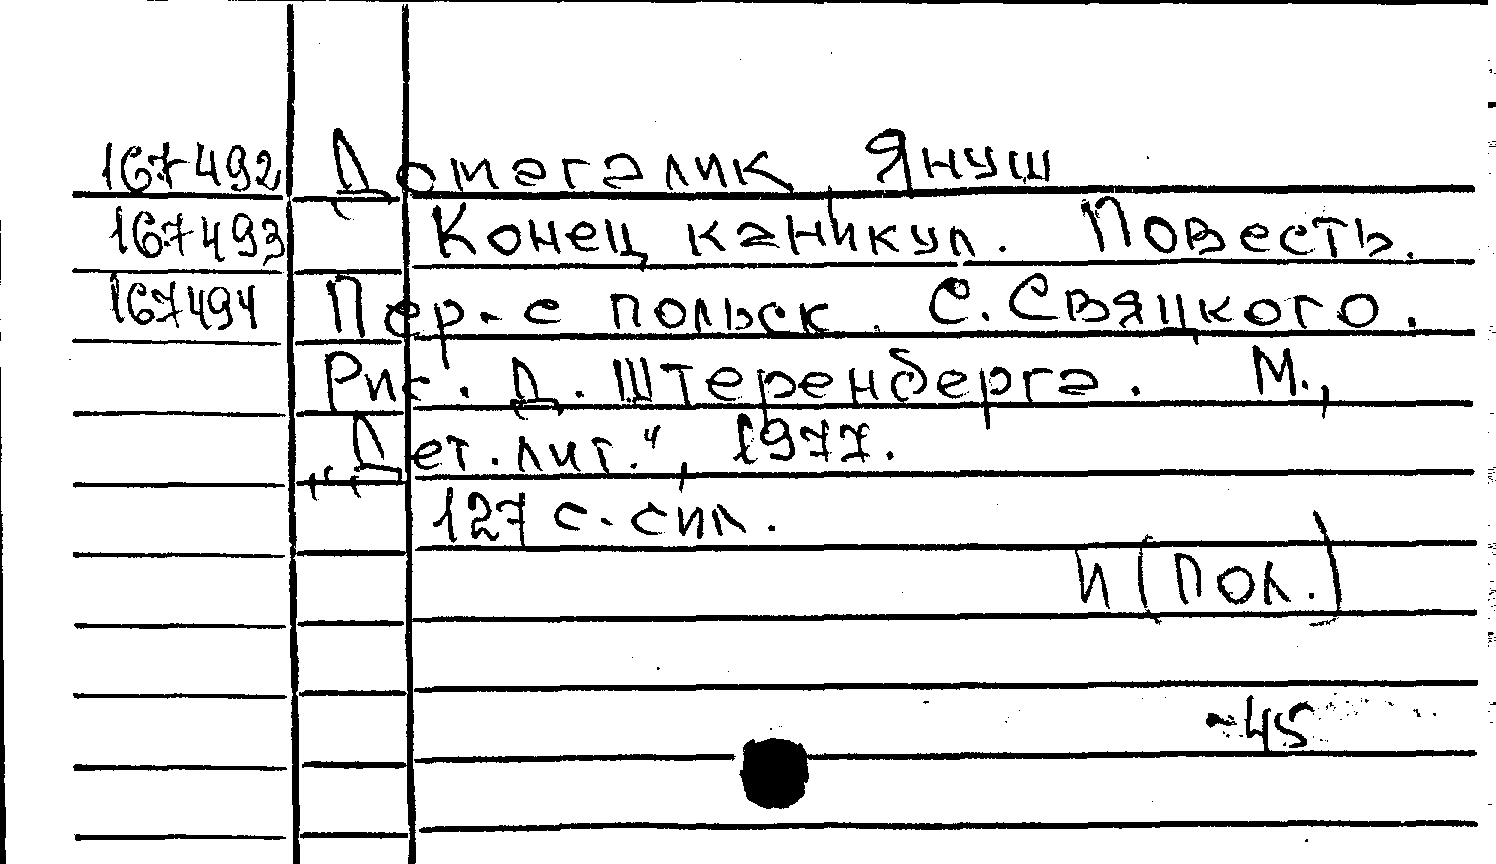 167492 Домагалик Януш
167493 Конец каникул. Повесть.
167494 Пер. с польск. С. Свяцкого.
Рис. Д. Штеренберга. М.,
„Дет. лит.“, 1977.
127 с. с ил.
И (пол.)
-45